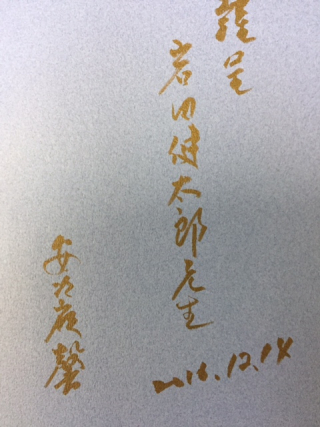 謹呈
岩田健太郎先生
2016.12.14
安次嶺馨